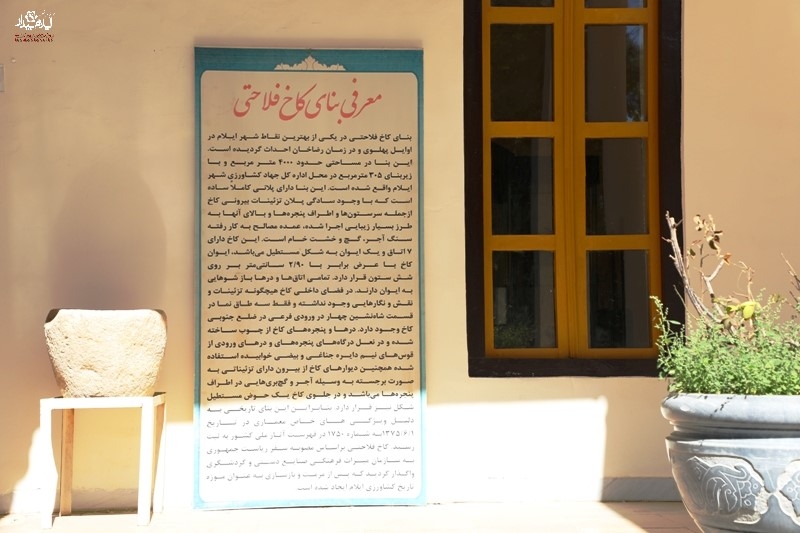 معرفی بنای کاخ فلاحتی
بنای کاخ فلاحتی در یکی از بهترین نقاط شهر ایلام در
اوایل پهلوی و در زمان رضاخان احداث گردیده است.
این بنا در مساحتی حدود ۴۰۰۰ متر مربع و با
زیربنای ۳۰۵ مترمربع در محل اداره کل جهاد کشاورزی شهر
ایلام واقع شده است. این بنا دارای پلانی کاملاً ساده
است که با وجود سادگی پلان تزئینات بیرونی کاخ
ازجمله سرستون‌ها و اطراف پنجره‌ها و بالای آنها به
طرز بسیار زیبایی اجرا شده، عمده مصالح به کار رفته
سنگ آجر، گچ و خشت خام است. این کاخ دارای
۷ اتاق و یک ایوان به شکل مستطیل می‌باشد، ایوان
کاخ با عرض برابر با ۲/۹۰ سانتی‌متر بر روی
شش ستون قرار دارد. تمامی اتاق‌ها و درها باز شوهایی
به ایوان دارند. در فضای داخلی کاخ هیچگونه تزئینات و
نقش و نگارهایی وجود نداشته و فقط سه طاق نما در
قسمت شاه‌نشین چهار در ورودی فرعی در ضلع جنوبی
کاخ وجود دارد. درها و پنجره‌های کاخ از چوب ساخته
شده و در نعل درگاه‌های پنجره‌های و درهای ورودی از
قوس‌های نیم دایره جناغی و بیضی خوابیده استفاده
شده همچنین دیوارهای کاخ از بیرون دارای تزئیناتی به
صورت برجسته به وسیله آجر و گچ‌بری‌هایی در اطراف
پنجره‌ها می‌باشد و در جلوی کاخ یک حوض مستطیل
شکل نیز قرار دارد. بنابراین این بنای تاریخی به
دلیل ویژگی های خاص معماری در تاریخ
۱۳۷۵/۶/۱به شماره ۱۷۵۰ در فهرست آثار ملی کشور به ثبت
رسید. کاخ فلاحتی براساس مصوبه سفر ریاست جمهوری
به سازمان میراث فرهنگی صنایع دستی و گردشگری
واگذار گردید که پس از مرمت و بازسازی به عنوان موزه
تاریخ کشاورزی ایلام ایجاد شده است